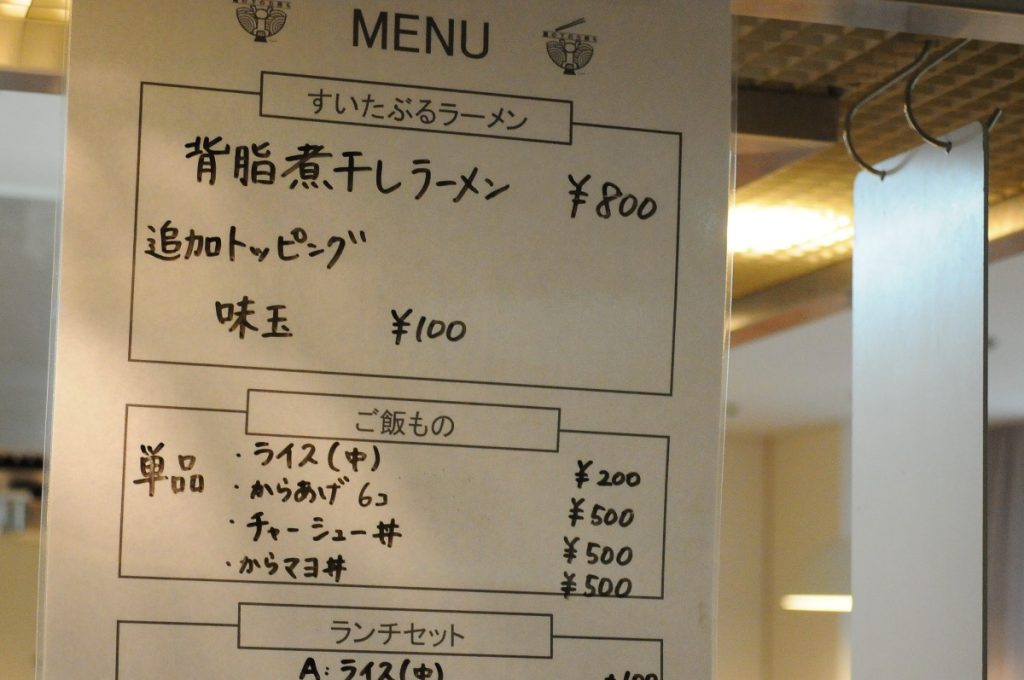 MENU
すいたぶるラーメン
背脂煮干しラーメン ¥800
追加トッピング
味玉 ¥100
ご飯もの
単品 ・ライス(中) ¥200
・からあげ 6コ ¥500
・チャーシュー丼 ¥500
・からマヨ丼 ¥500
ランチセット
A:ライス(中) +100